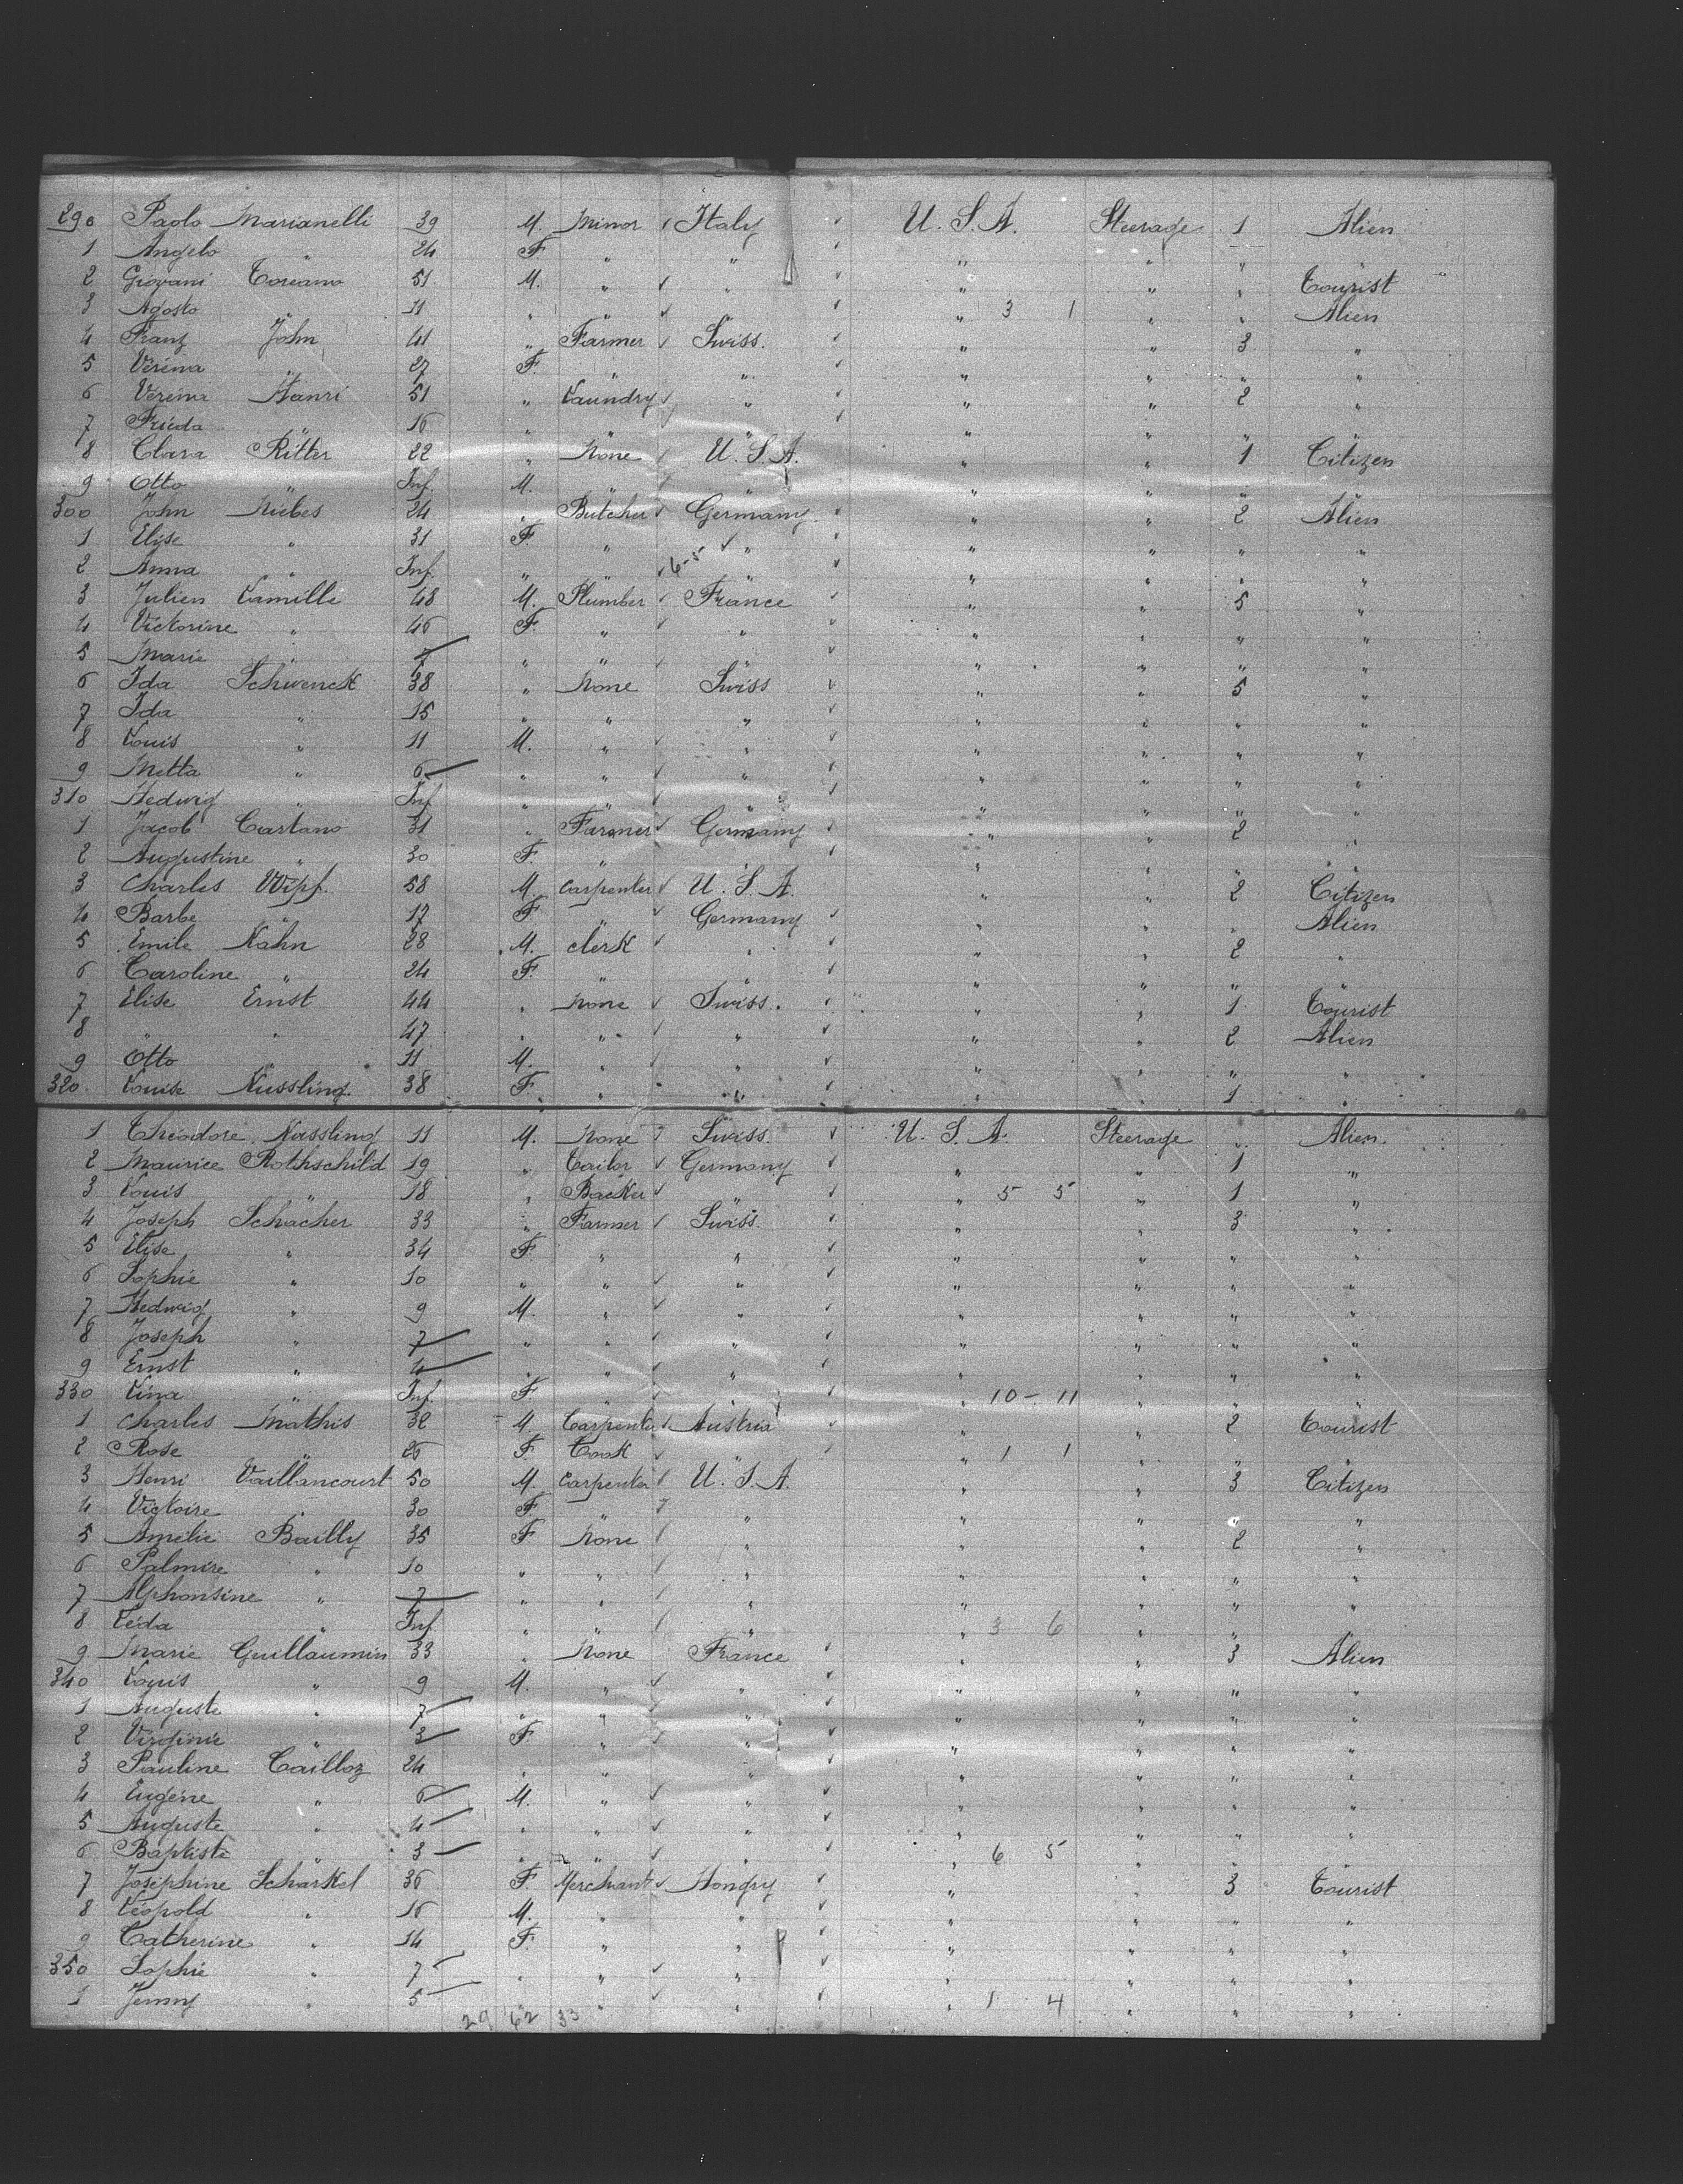 290 Paolo Marianelli 39 M. Minor Italy U. S. A. Steerage 1 Alien
1 Angelo " 24 F " " " " " "
2 Giovani Toreano 51 M. " " " " " Tourist
3 Agosto " 11 " " " " 3 1 " " Alien
4 Franz John 41 " Farmer Swiss. " " 3 "
5 Verena " 27 F. " " " " " "
6 Verena Hanri 51 " Laundry " " " 2 "
7 Frieda " 16 " " " " " " "
8 Clara Ritter 22 " None U. S. A. " " 1 Citizen
9 Otto " Inf. M. " " " " " "
300 John Niebes 24 " Butcher Germany " " 2 Alien
1 Elise " 31 F. " " " " " "
2 Anna " Inf. " " 6-5 " " " " "
3 Julien Camille 48 M. Plumber France " " 5 "
4 Victorine " 46 F. " " " " " "
5 Marie " 7 " " " " " " "
6 Ida Schwenck 38 " None Swiss " " 5 "
7 Ida " 15 " " " " " " "
8 Louis " 11 M. " " " " " "
9 Metta " 6 " " " " " " "
310 Hedwig " Inf " " " " " " "
1 Jacob Castano 31 " Farmer Germany " " 2 "
2 Augustine " 30 F. " " " " " "
3 Charles Wipf. 58 M. Carpenter U. S. A. " " 2 Citizen
4 Barbe " 17 F. " Germany " " " Alien
5 Emile Kahn 28 M. clerk " " " 2 "
6 Caroline " 24 F. " " " " " "
7 Elise Ernst 44 " None Swiss. " " 1 Tourist
8 " " 47 " " " " " 2 Alien
9 Otto " 11 M. " " " " " "
320 Louise Nussling. 38 F. " " " " 1 "
1 Théodore Nussling 11 M. None Swiss. U. S. A. Steerage " Alien.
2 Maurice Rothschild 19 " Tailor Germany " " 1 "
3 Louis " 18 " Backer " " 5 5 " 1 "
4 Joseph Schacher 33 " Farmer Swiss. " " 3 "
5 Elise " 34 F. " " " " " "
6 Sophie " 10 " " " " " " "
7 Hedwig " 9 M. " " " " " "
8 Joseph " 7 " " " " " " "
9 Ernst " 4 " " " " " " "
330 Lina " Inf. F. " " " 10 - 11 " " "
1 Charles Mathis 32 M. Carpenter Austria " " 2 Tourist
2 Rose " 26 F. Cook " " 1 1 " " "
3 Henri Vaillancourt 50 M. Carpenter U. S. A. " " 3 Citizen
4 Victoire " 30 F. " " " " " "
5 Amélie Bailly 35 F None " " " 2 "
6 Palmire " 10 " " " " " " "
7 Alphonsine " 7 " " " " " " "
8 Léda " Inf. " " " " 3 6 " " "
9 Marie Guillaumin 33 " None France " " 3 Alien
340 Louis " 9 M. " " " " " "
1 Auguste " 7 " " " " " " "
2 Virginie " 3 F. " " " " " "
3 Pauline Cailloz 24 " " " " " " "
4 Eugène " 6 M. " " " " " "
5 Auguste " 4 " " " " " " "
6 Baptiste " 3 " " " " 6 5 " " "
7 Joséphine Scharkel 36 F. Merchant Hongry " " 3 Tourist
8 Léopold " 16 M. " " " " " "
9 Catherine " 14 F. " " " " " "
350 Sophie " 7 " " " " " " "
1 Jenny " 5 " " " " 1 4 " " "
29 62 33